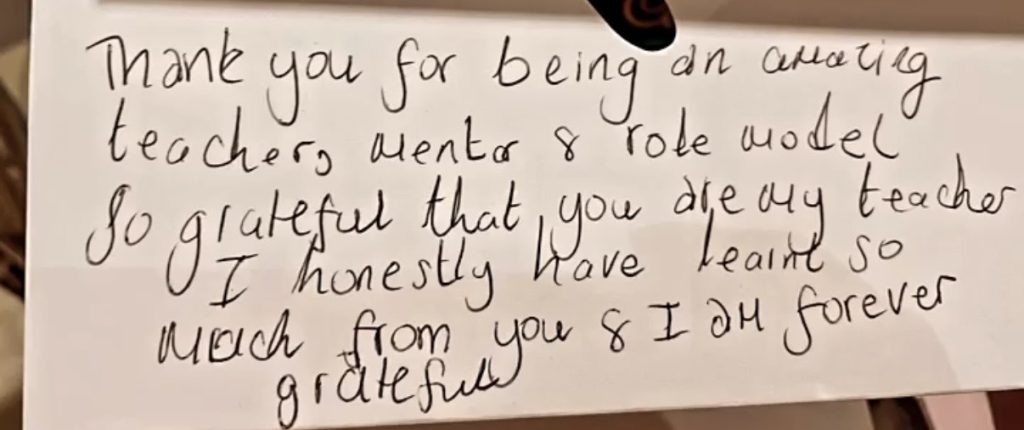 Thank you for being an amazing
teacher, mentor & role model
So grateful that you are my teacher
I honestly have learnt so
much from you & I am forever
grateful